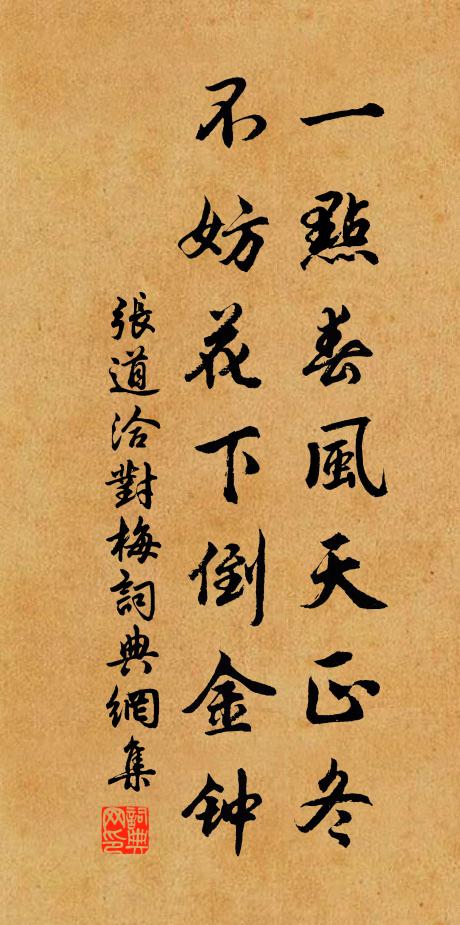 一點春風天正冬
不妨花下倒金钟
張道洽對梅詞典網集
詞典网印